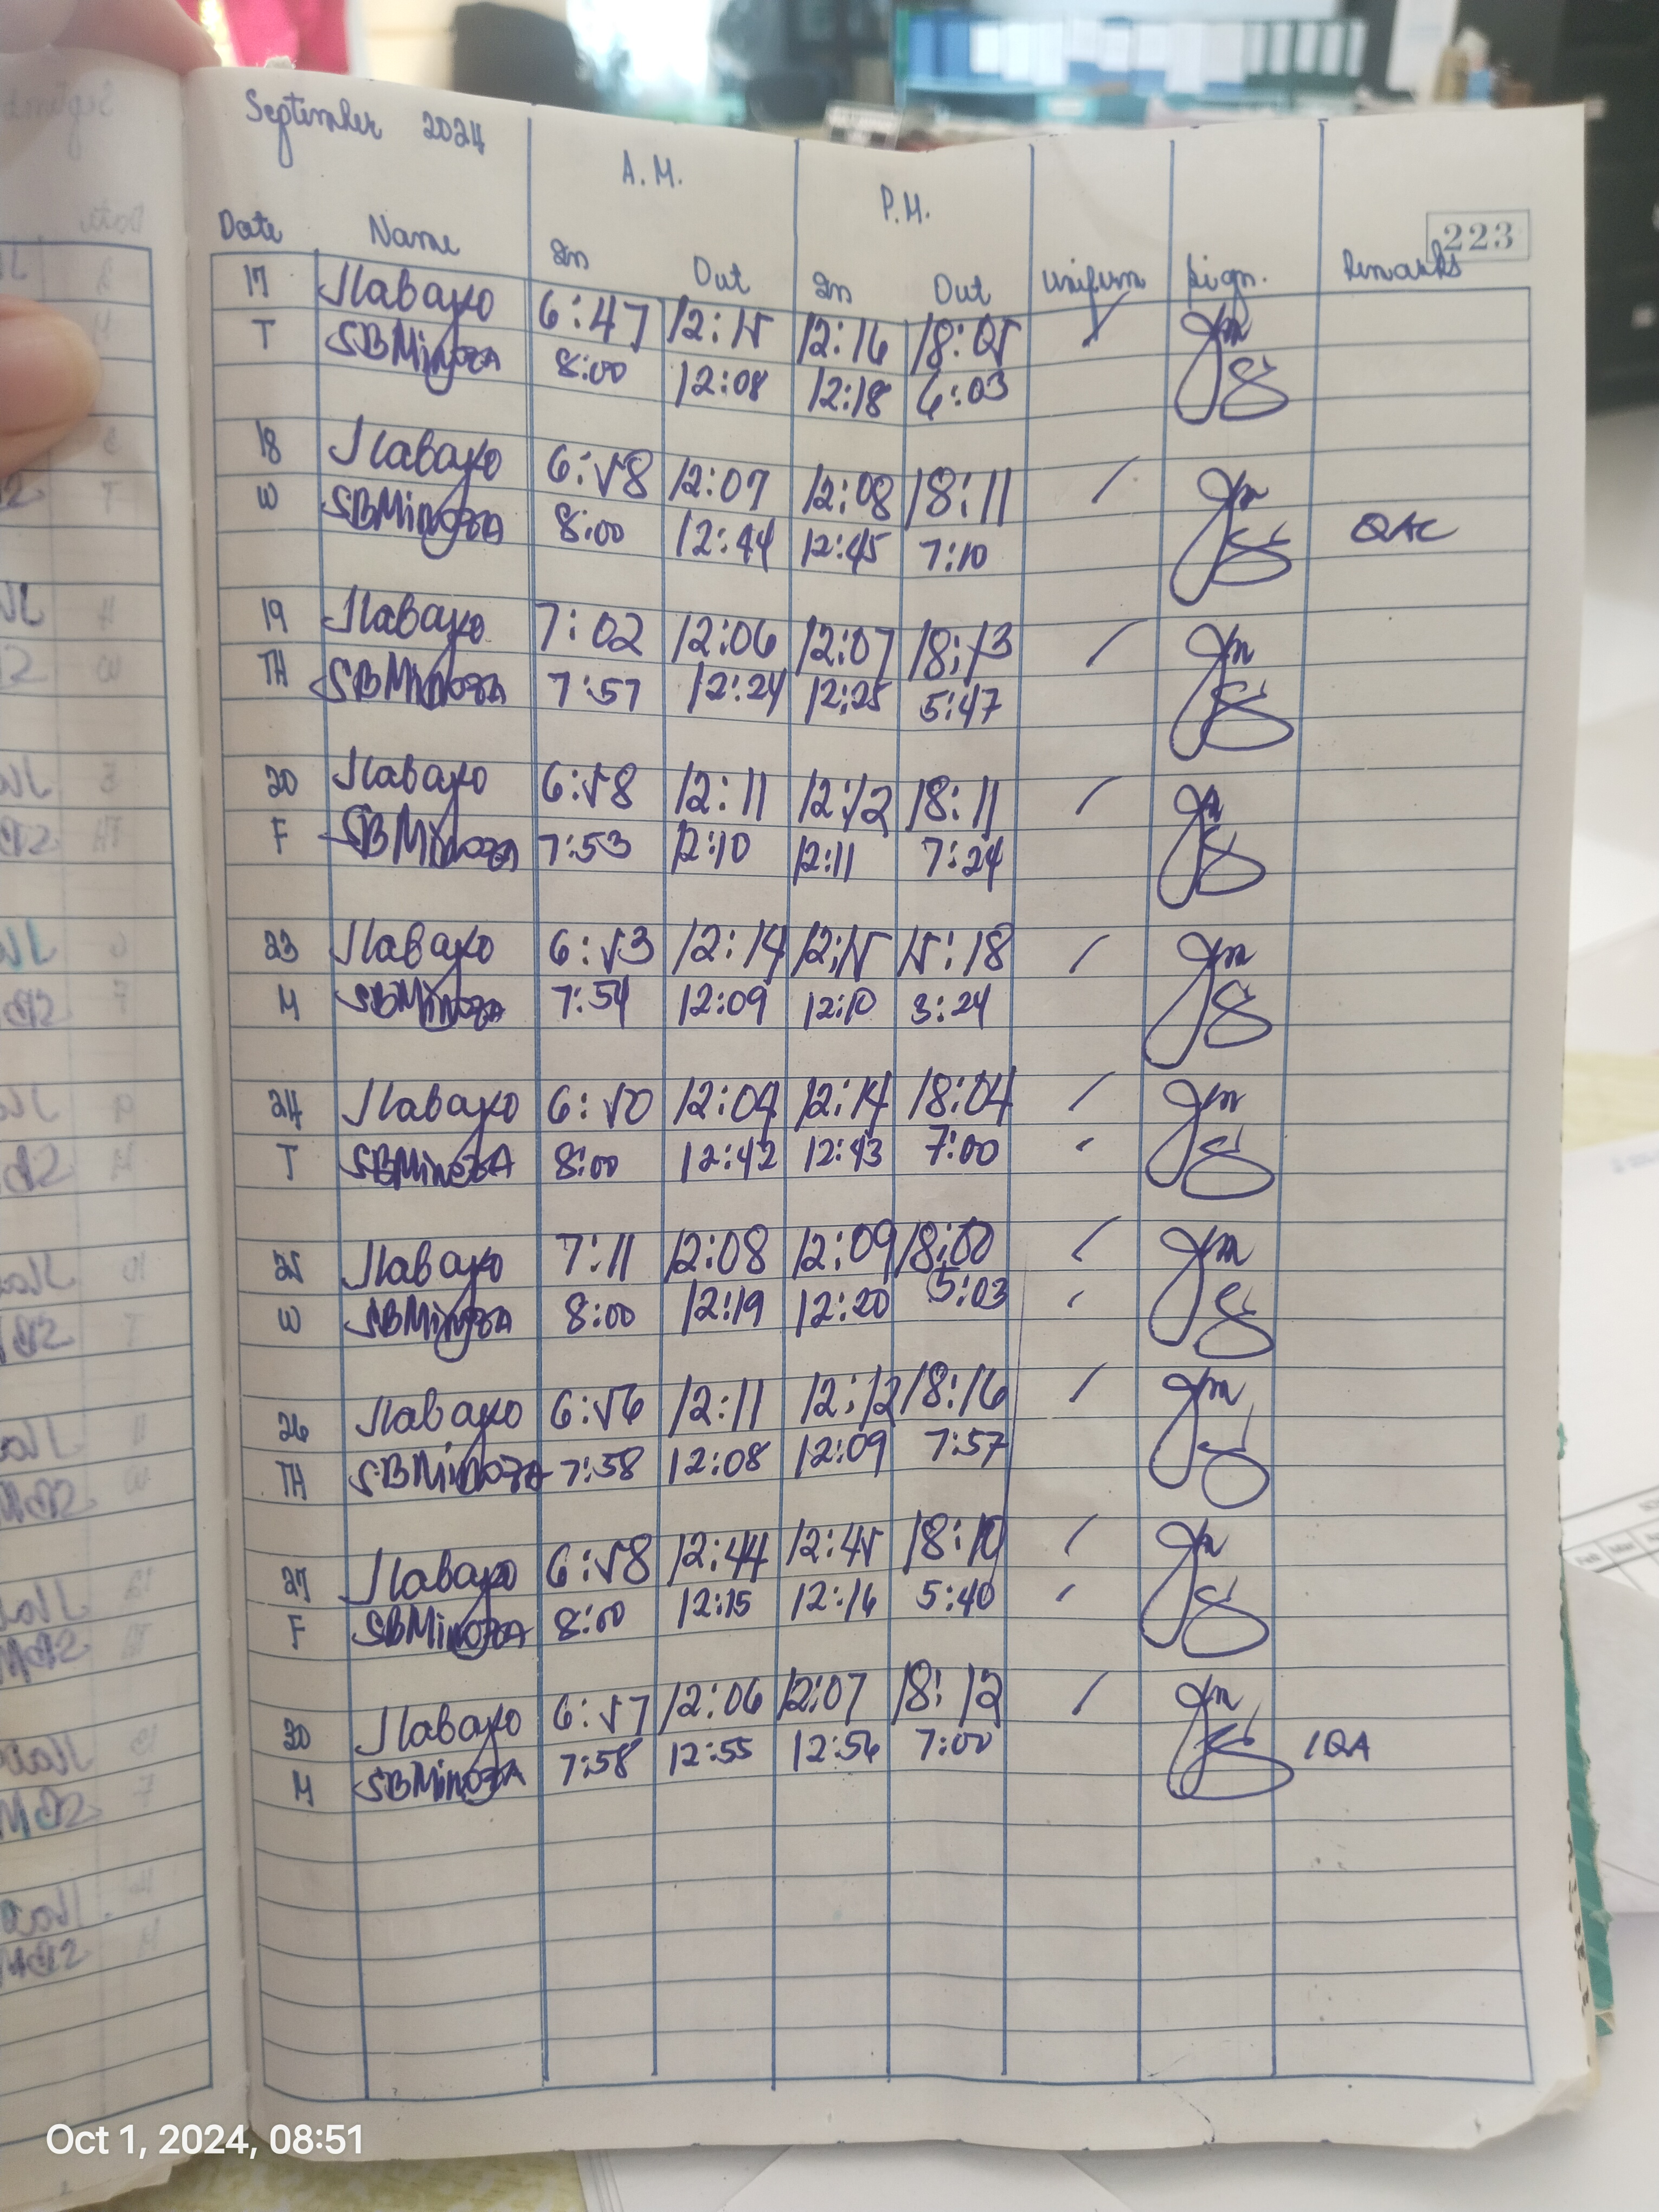 September 2024
A.M.
P.M.
223
Date Name In Out In Out Uniform Sign. Remarks
17 Jlabayo 6:47 12:15 12:16 18:05 /
T SBMinoza 8:00 12:08 12:18 6:03
18 Jlabayo 6:58 12:07 12:08 18:11 /
W SBMinoza 8:00 12:44 12:45 7:10 QAC
19 Jlabayo 7:02 12:06 12:07 18:13 /
TH SBMinoza 7:57 12:24 12:25 5:47
20 Jlabayo 6:58 12:11 12:12 18:11 /
F SBMinoza 7:53 12:10 12:11 7:24
23 Jlabayo 6:53 12:14 12:15 15:18 /
M SBMinoza 7:54 12:09 12:10 3:24
24 Jlabayo 6:50 12:09 12:14 18:04 /
T SBMinoza 8:00 12:42 12:43 7:00 /
25 Jlabayo 7:11 12:08 12:09 18:00 /
W SBMinoza 8:00 12:19 12:20 5:03 /
26 Jlabayo 6:56 12:11 12:12 18:16 /
TH SBMinoza 7:58 12:08 12:09 7:57
27 Jlabayo 6:58 12:44 12:45 18:10 /
F SBMinoza 8:00 12:15 12:16 5:40 /
30 Jlabayo 6:57 12:06 12:07 18:12 /
M SBMinoza 7:58 12:55 12:56 7:00 IQA
Oct 1, 2024, 08:51